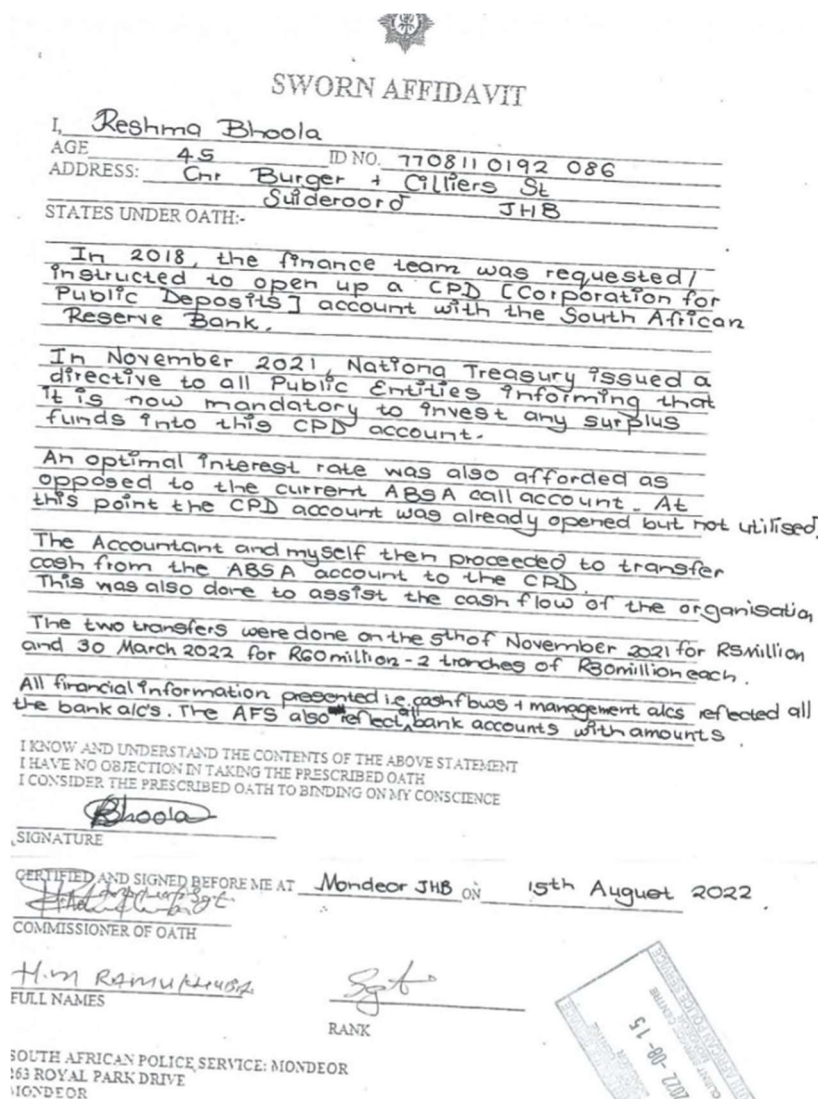 SWORN AFFIDAVIT
I, Reshma Bhoola
AGE 45 ID NO. 770811 0192 086
ADDRESS: Cnr Burger + Cilliers St
Suideroord JHB
STATES UNDER OATH:-
In 2018, the finance team was requested/
instructed to open up a CPD [Corporation for
Public Deposits] account with the South African
Reserve Bank.
In November 2021, Nationa Treasury issued a
directive to all Public Entities informing that
it is now mandatory to invest any surplus
funds into this CPD account.
An optimal interest rate was also afforded as
opposed to the current ABSA call account. At
this point the CPD account was already opened but not utilised.
The Accountant and myself then proceeded to transfer
cash from the ABSA account to the CPD.
This was also done to assist the cash flow of the organisatio
The two transfers were done on the 5th of November 2021 for R5Million
and 30 March 2022 for R60million - 2 tranches of R30million each.
All financial information presented i.e cashflows + management a/cs reflected all
the bank a/c's. The AFS also reflect all bank accounts with amounts.
I KNOW AND UNDERSTAND THE CONTENTS OF THE ABOVE STATEMENT
I HAVE NO OBJECTION IN TAKING THE PRESCRIBED OATH
I CONSIDER THE PRESCRIBED OATH TO BINDING ON MY CONSCIENCE
Bhoola
SIGNATURE
CERTIFIED AND SIGNED BEFORE ME AT Mondeor JHB ON 15th August 2022.
COMMISSIONER OF OATH
H.M RAMUKHUBA Sgt
FULL NAMES
RANK
SOUTH AFRICAN POLICE SERVICE: MONDEOR
263 ROYAL PARK DRIVE
MONDEOR
CLIENT SERVICE CENTRE
2022-08-15
SOUTH AFRICAN POLICE SERVICE